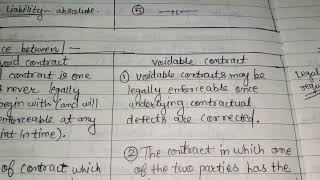 liability absolute. ⑤ —"—
ce between | —
void contract | Voidable contract
l contract is one | ① Voidable contracts may be
s never legally | legally enforceable once
begin with (and will | underlying contractual
enforceable at any | defects are corrected.
int in time).
② The contract in which one
of contract which | of the two parties has the
Legal